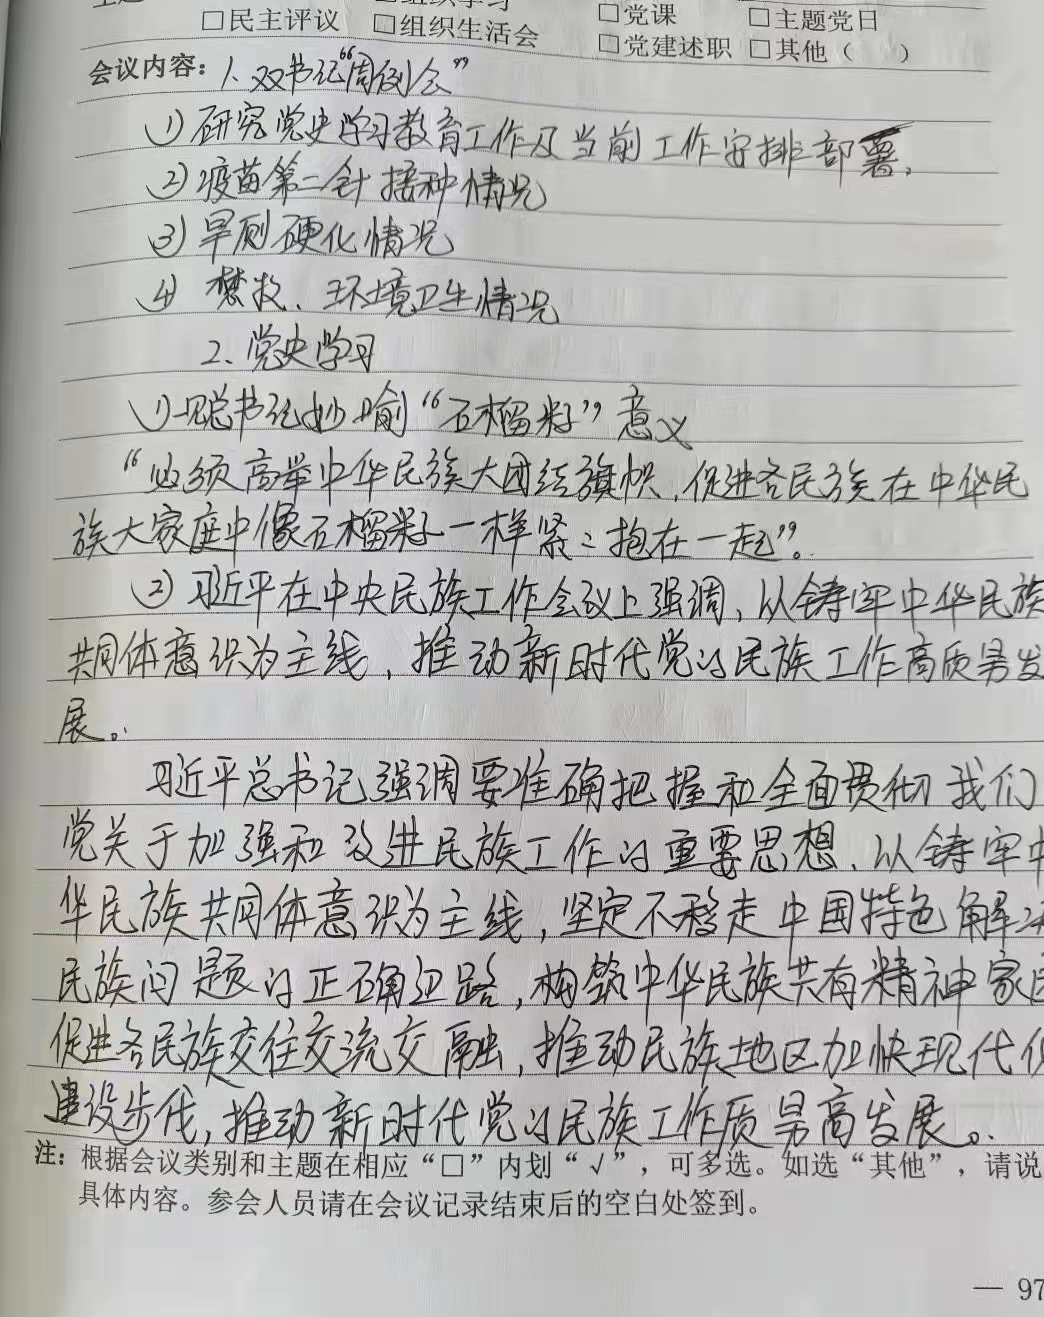 □民主评议 □组织生活会 □党课 □主题党日
□党建述职 □其他（ ）
会议内容：1、双书记“周例会”
①研究党史学习教育工作及当前工作安排部署，
②疫苗第二针接种情况
③旱厕硬化情况
④禁牧、环境卫生情况
2、党史学习
①总书记妙喻“石榴籽”意义
“必须高举中华民族大团结旗帜，促进各民族在中华民
族大家庭中像石榴籽一样紧紧抱在一起”。
②习近平在中央民族工作会议上强调，以铸牢中华民族
共同体意识为主线，推动新时代党的民族工作高质量发
展。
习近平总书记强调要准确把握和全面贯彻我们
党关于加强和改进民族工作的重要思想，以铸牢中
华民族共同体意识为主线，坚定不移走中国特色解决
民族问题的正确道路，构筑中华民族共有精神家园
促进各民族交往交流交融，推动民族地区加快现代化
建设步伐，推动新时代党的民族工作质量高发展。
注：根据会议类别和主题在相应“□”内划“√”，可多选。如选“其他”，请说
具体内容。参会人员请在会议记录结束后的空白处签到。
— 97